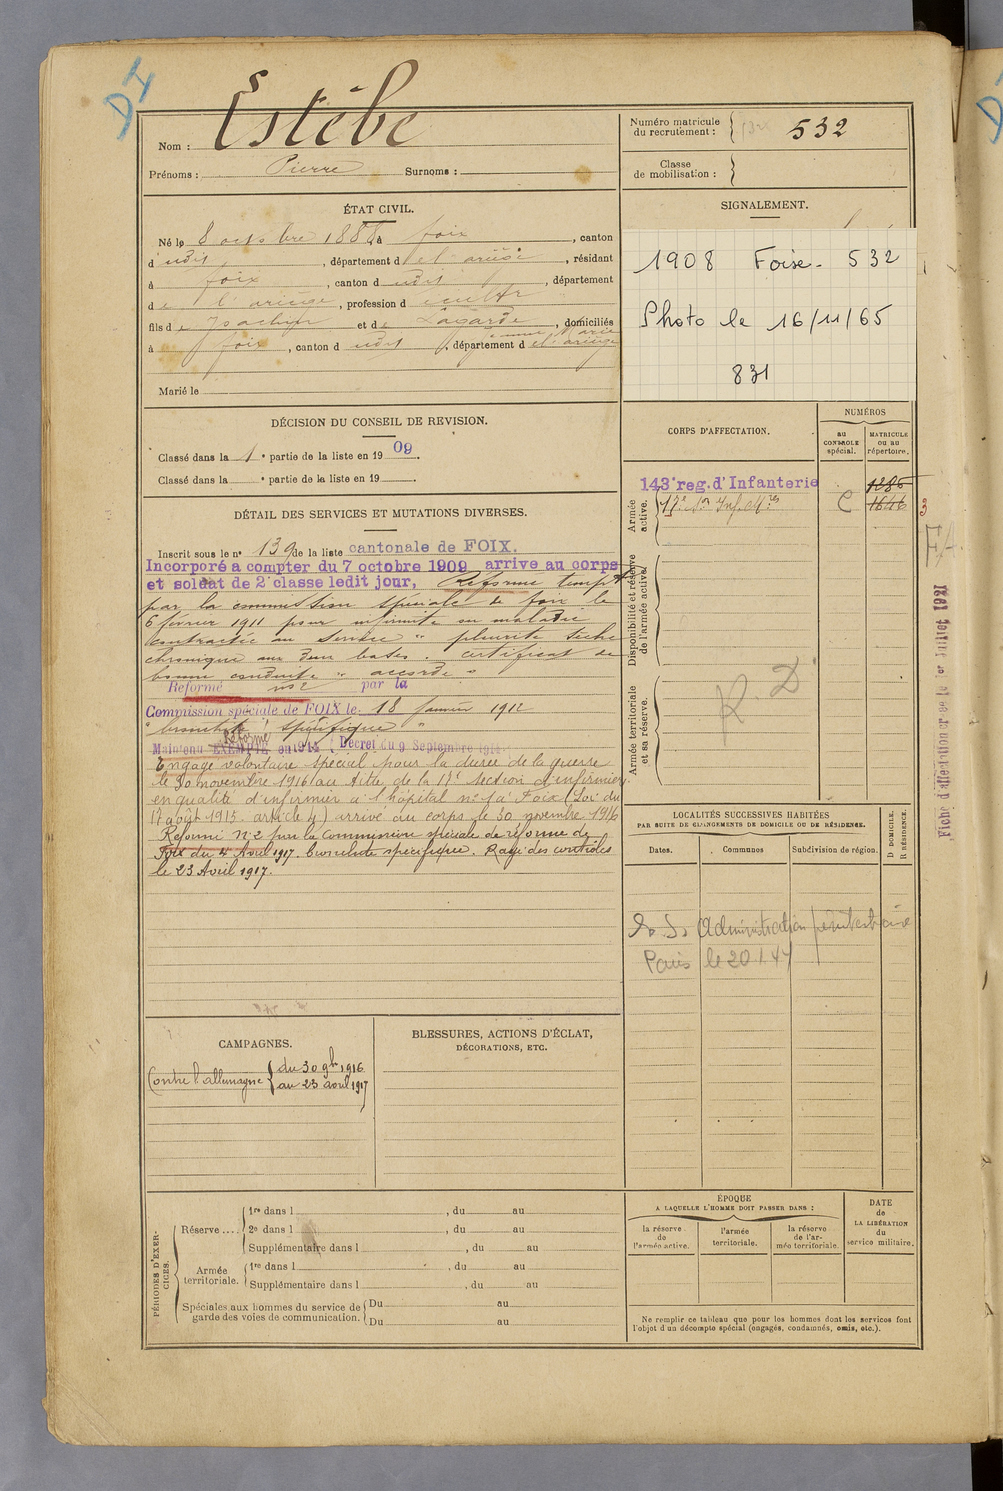 DI
Nom : Estèbe
Prénoms : Pierre Surnoms :
Numéro matricule du recrutement : 532
Classe de mobilisation :
ÉTAT CIVIL.
Né le 8 octobre 1888 à foix, canton
d udit, département de l'ariège, résidant
à foix, canton d udit, département
de l'ariege, profession d cultr
fils de Joachim et de Lagarde, domiciliés
Marie
à foix, canton d udit, département de l'ariège
Marié le
SIGNALEMENT.
1908 Foix - 532
Photo le 16/11/65
831
DÉCISION DU CONSEIL DE REVISION.
Classé dans la 1e partie de la liste en 1909.
Classé dans la e partie de la liste en 19 .
DÉTAIL DES SERVICES ET MUTATIONS DIVERSES.
Inscrit sous le no 139 de la liste cantonale de FOIX.
Incorporé a compter du 7 octobre 1909 arrive au corps
et soldat de 2e classe ledit jour, Réformé tempre
par la commission spéciale de foix le
6 février 1911 pour infirmité ou maladie
contractée au service " pleurite sèche
chronique aux deux bases. certificat de
bonne conduite " accordé "
Reformé no 2 par la
Commission spéciale de FOIX le 18 janvier 1912
" bronchite spécifique "
Réformé
Maintenu EXEMPTÉ en 1914 Décret du 9 Septembre 1914
Engagé volontaire spécial pour la durée de la guerre
le 30 novembre 1916 au titre de la 17e section d'infirmiers
en qualité d'infirmier à l'hôpital no 1 à Foix (Loi du
17 août 1915. article 4) arrivé au corps le 30 novembre 1916
Réformé No 2 par la Commission spéciale de réforme de
Foix du 4 Avril 1917. bronchite spécifique. Rayé des contrôles
le 23 Avril 1917.
CORPS D'AFFECTATION.
NUMÉROS
au CONTROLE spécial.
MATRICULE OU AU répertoire.
Armée active.
143e reg. d'Infanterie 1286
17e Son Inf. Mres C 1646
Disponibilité et réserve de l'armée active.
Armée territoriale et sa réserve.
R. D
Fiche d'affectation er de le 1er Juillet 1921
LOCALITÉS SUCCESSIVES HABITÉES
PAR SUITE DE CHANGEMENTS DE DOMICILE OU DE RÉSIDENCE.
Dates. Communes Subdivision de région.
D DOMICILE. R RÉSIDENCE.
Administration pénitentiaire
Paris le 20.1.47
CAMPAGNES.
Contre l'allemagne du 30 9bre 1916
au 23 avril 1917
BLESSURES, ACTIONS D'ÉCLAT,
DÉCORATIONS, ETC.
PÉRIODES D'EXERCICES.
Réserve....
1re dans l , du au
2e dans l , du au
Supplémentaire dans l , du au
Armée territoriale.
1re dans l , du au
Supplémentaire dans l , du au
Spéciales aux hommes du service de garde des voies de communication.
Du au
Du au
ÉPOQUE
A LAQUELLE L'HOMME DOIT PASSER DANS :
la réserve de l'armée active.
l'armée territoriale.
la réserve de l'armée territoriale.
DATE de LA LIBÉRATION du service militaire.
Ne remplir ce tableau que pour les hommes dont les services font
l'objet d'un décompte spécial (engagés, condamnés, omis, etc.).